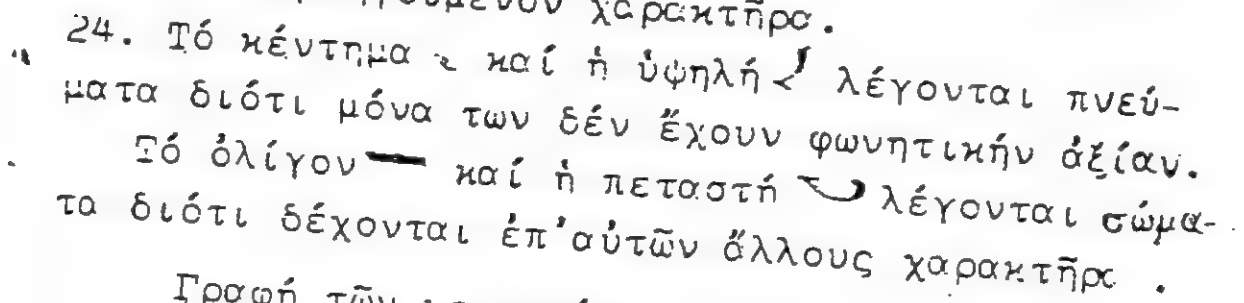 χαρακτῆρα.
24. Τό κέντημα καί ἡ ὑψηλή λέγονται πνεύ-
ματα διότι μόνα των δέν ἔχουν φωνητικήν ἀξίαν.
Τό ὀλίγον καί ἡ πεταστή λέγονται σώμα-
τα διότι δέχονται ἐπ'αὐτῶν ἄλλους χαρακτῆρα .
Γραφή τῶν